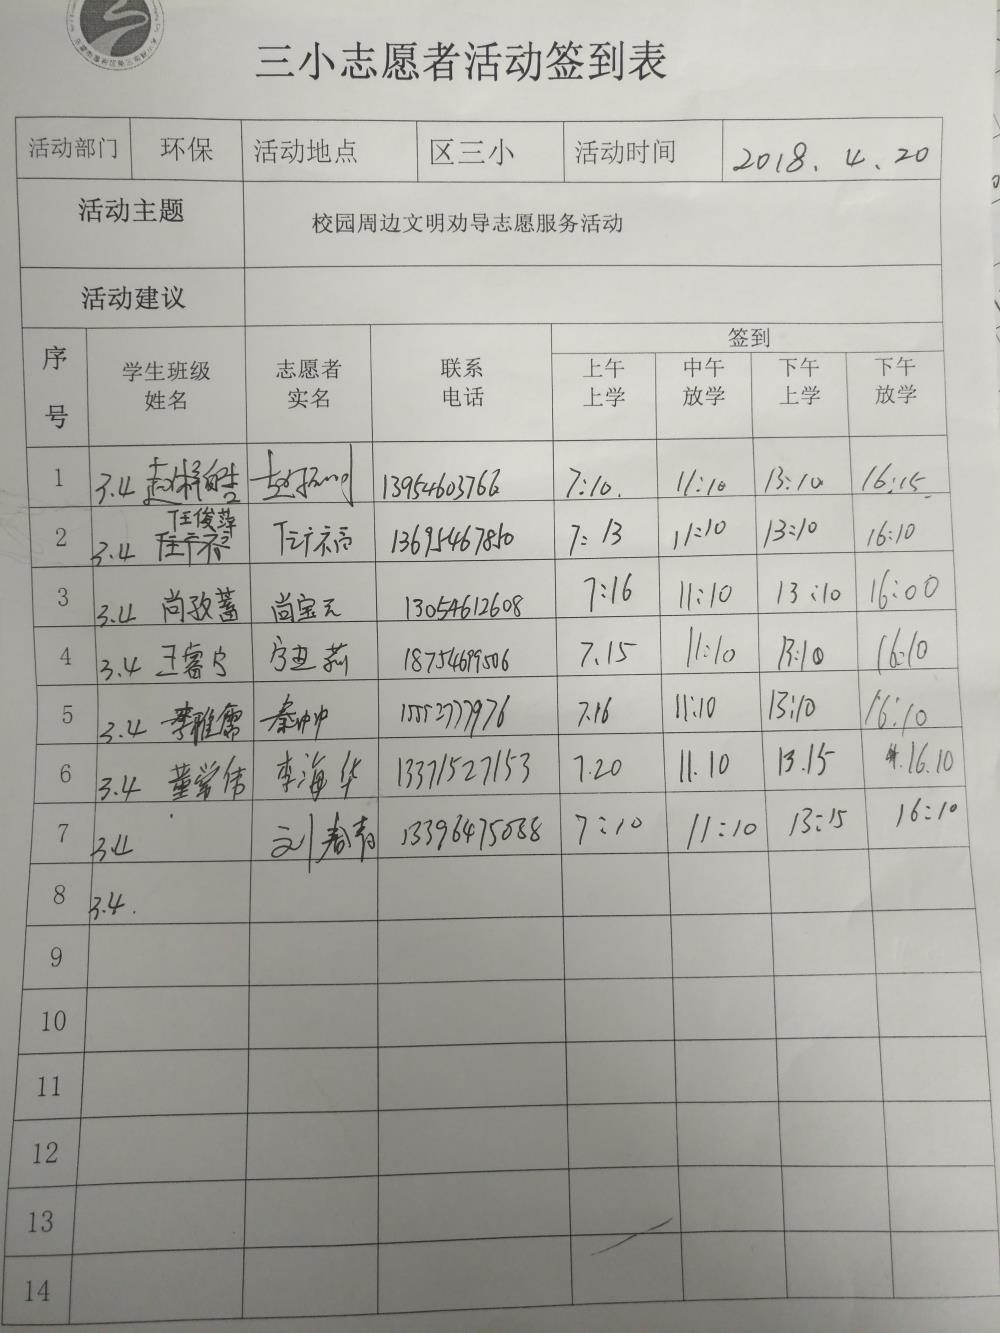 三小志愿者活动签到表
活动部门 环保 活动地点 区三小 活动时间 2018.4.20
活动主题 校园周边文明劝导志愿服务活动
活动建议
序号 学生班级姓名 志愿者实名 联系电话 签到
上午上学 中午放学 下午上学 下午放学
1 3.4 13954603766 7:10. 11:10 13:10 16:15
任俊萍
2 3.4 任广福 13695467850 7:13 11:10 13:10 16:10
3 3.4 尚孜蓄 尚宝元 13054612608 7:16 11:10 13:10 16:00
4 3.4 王睿宁 18754699506 7.15 11:10 13:10 16:10
5 3.4 李雅儒 秦帅帅 15552777976 7.16 11:10 13:10 16:10
6 3.4 董学伟 李海华 13371527153 7.20 11.10 13.15 16.10
7 3.4 刘春青 7:10 11:10 13:15 16:10
8 3.4.
9
10
11
12
13
14